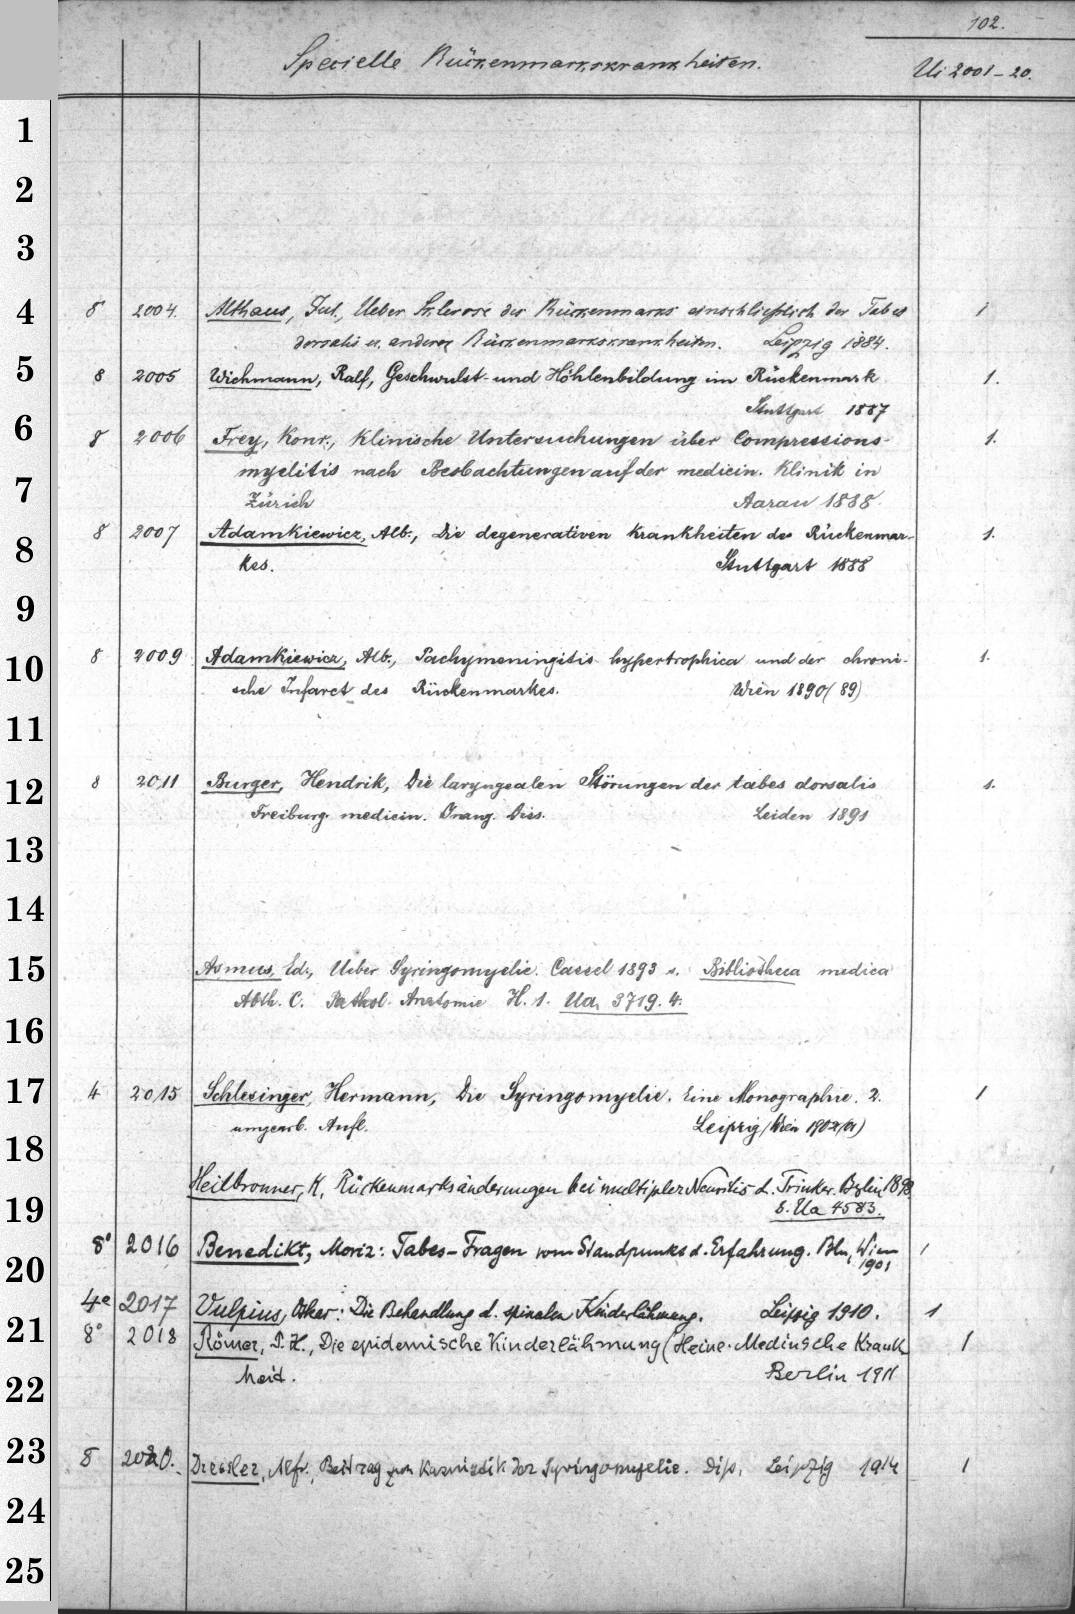 102.
Specielle Rückenmarkskrankheiten.
Ui 2001-20.
1
2
3
4 8 2004. Althaus, Jul., Ueber Sklerose des Rückenmarks einschließlich der Tabes 1
dorsalis u. anderer Rückenmarkskrankheiten. Leipzig 1884.
5 8 2005 Wichmann, Ralf, Geschwulst- und Höhlenbildung im Rückenmark 1.
Stuttgart 1887
6 8 2006 Frey, Konr., Klinische Untersuchungen über Compressions- 1.
myelitis nach Beobachtungen auf der medicin. Klinik in
7 Zürich Aarau 1888.
8 8 2007 Adamkiewicz, Alb., Die degenerativen Krankheiten des Rückenmar- 1.
kes. Stuttgart 1888
9
10 8 2009 Adamkiewicz, Alb., Pachymeningitis hypertrophica und der chroni- 1.
sche Infarct des Rückenmarkes. Wien 1890(89)
11
12 8 2011 Burger, Hendrik, Die laryngealen Störungen der tabes dorsalis 1.
Freiburg. medicin. Diss. Leiden 1891
13
14
15 Asmus, Ed., Ueber Syringomyelie. Cassel 1893 s. Bibliotheca medica
Abth. C. Pathol. Anatomie H. 1. Ua 3719. 4.
16
17 4 2015 Schlesinger, Hermann, Die Syringomyelie. Eine Monographie. 2. 1
umgearb. Aufl. Leipzig/Wien 1902(01)
18
Heilbronner, K, Rückenmarksänderungen bei multipler Neuritis d. Trinker. Berlin 1898
19 s. Ua 4583.
8° 2016 Benedikt, Moriz: Tabes-Fragen vom Standpunkt d. Erfahrung. Bln, Wien 1
20 1901
4° 2017 Vulpius, Oskar: Die Behandlung d. spinalen Kinderlähmung. Leipzig 1910. 1
21 8° 2018 Römer, P. H., Die epidemische Kinderlähmung (Heine-Medinsche Krank 1
22 heit. Berlin 1911
23 8 2020. Dressler, Alfr., Beitrag zur Kasuistik der Syringomyelie. Diss. Leipzig 1914 1
24
25